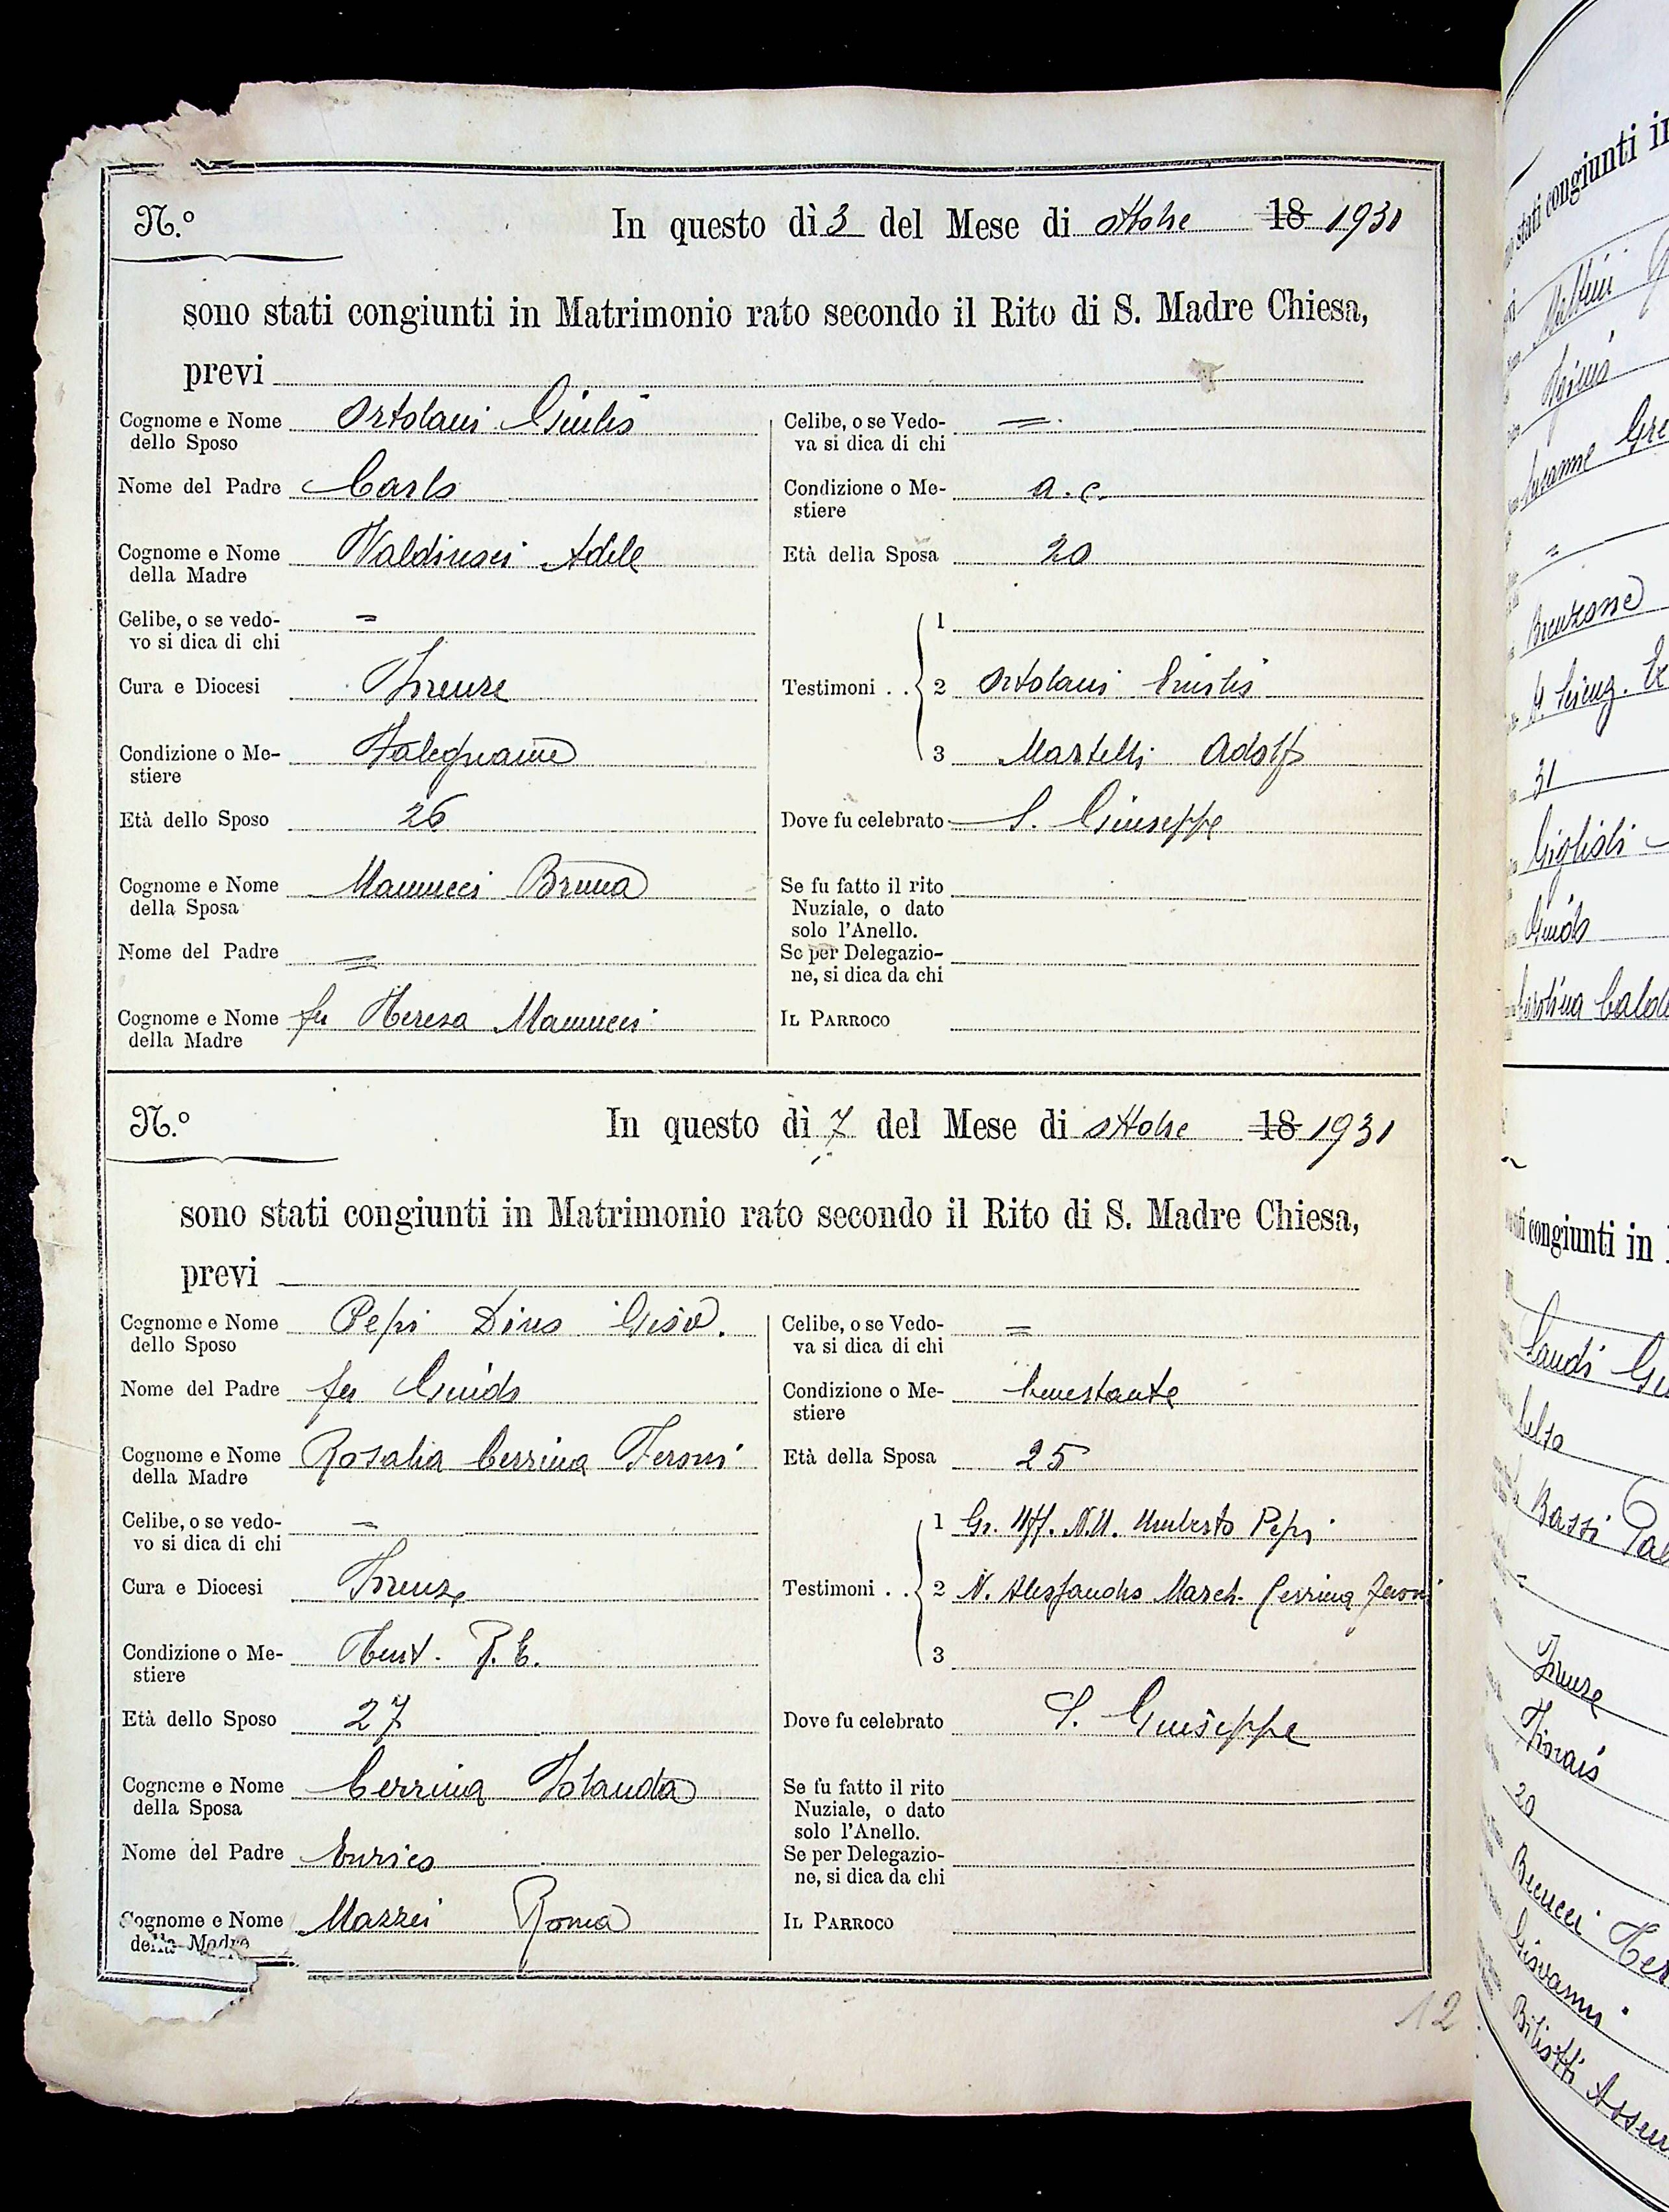 N.º In questo dì 3 del Mese di ottobre 18 1931
sono stati congiunti in Matrimonio rato secondo il Rito di S. Madre Chiesa,
previ
Cognome e Nome dello Sposo Ortolani Giulio
Nome del Padre Carlo
Cognome e Nome della Madre Valdinoci Adele
Celibe, o se vedovo si dica di chi =
Cura e Diocesi Firenze
Condizione o Mestiere Falegname
Età dello Sposo 26
Cognome e Nome della Sposa Mannucci Bruna
Nome del Padre =
Cognome e Nome della Madre fu Teresa Mannucci
Celibe, o se Vedova si dica di chi =
Condizione o Mestiere a. c.
Età della Sposa 20
Testimoni . . 1
2 Ortolani Emilio
3 Martelli Adolfo
Dove fu celebrato S. Giuseppe
Se fu fatto il rito Nuziale, o dato solo l'Anello.
Se per Delegazione, si dica da chi
IL PARROCO
N.º In questo dì 7 del Mese di ottobre 18 1931
sono stati congiunti in Matrimonio rato secondo il Rito di S. Madre Chiesa,
previ
Cognome e Nome dello Sposo Pepi Dino
Nome del Padre fu Guido
Cognome e Nome della Madre Rosalia Cerrina Feroni
Celibe, o se vedovo si dica di chi =
Cura e Diocesi Firenze
Condizione o Mestiere Tent. R. E.
Età dello Sposo 27
Cognome e Nome della Sposa Cerrina Iolanda
Nome del Padre Enrico
Cognome e Nome della Madre Mazzei Roma
Celibe, o se Vedova si dica di chi =
Condizione o Mestiere benestante
Età della Sposa 25
Testimoni . . 1 Gr. Uff. N.U. Umberto Pepi
2 N. Alessandro March. Cerrina Feroni
3
Dove fu celebrato S. Giuseppe
Se fu fatto il rito Nuziale, o dato solo l'Anello.
Se per Delegazione, si dica da chi
IL PARROCO
12